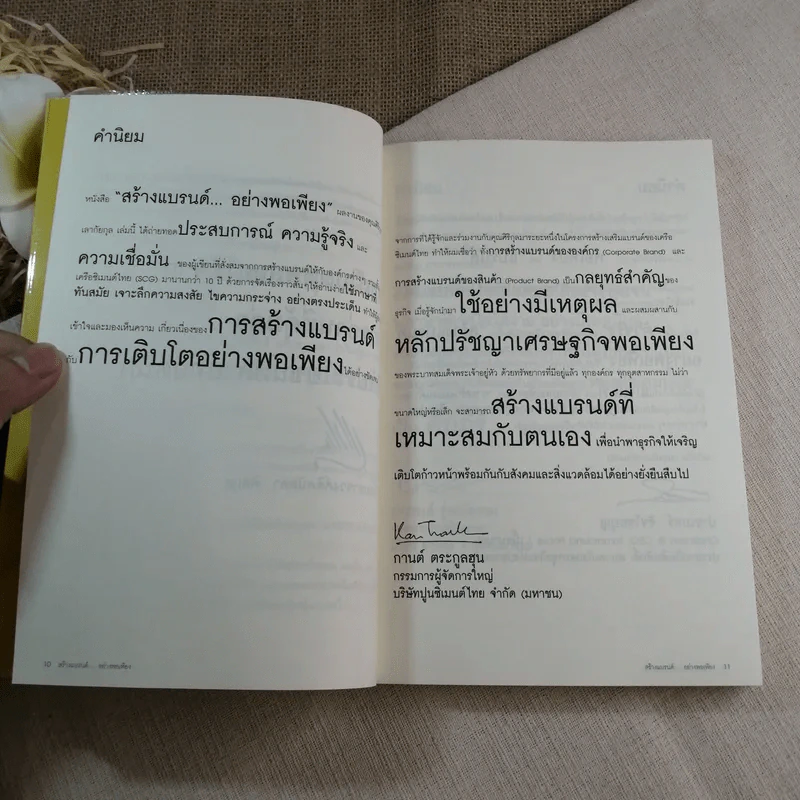 คำนิยม
หนังสือ “สร้างแบรนด์... อย่างพอเพียง” ผลงานของคุณศิริกุล
เลากัยกุล เล่มนี้ ได้ถ่ายทอดประสบการณ์ ความรู้จริง และ
ความเชื่อมั่น ของผู้เขียนที่สั่งสมจากการสร้างแบรนด์ให้กับองค์กรต่างๆ รวมทั้ง
เครือซิเมนต์ไทย (SCG) มานานกว่า 10 ปี ด้วยการจัดเรื่องราวสั้นๆ ให้อ่านง่าย ใช้ภาษาที่
ทันสมัย เจาะลึกความสงสัย ไขความกระจ่าง อย่างตรงประเด็น ทำให้ผู้
เข้าใจและมองเห็นความ เกี่ยวเนื่องของ การสร้างแบรนด์
กับ การเติบโตอย่างพอเพียง ได้อย่างชัดเจน
10 สร้างแบรนด์... อย่างพอเพียง
จากการที่ได้รู้จักและร่วมงานกับคุณศิริกุลมาระยะหนึ่งในโครงการสร้างเสริมแบรนด์ของเครือ
ซิเมนต์ไทย ทำให้ผมเชื่อว่า ทั้งการสร้างแบรนด์ขององค์กร (Corporate Brand) และ
การสร้างแบรนด์ของสินค้า (Product Brand) เป็นกลยุทธ์สำคัญของ
ธุรกิจ เมื่อรู้จักนำมา ใช้อย่างมีเหตุผล และผสมผสานกับ
หลักปรัชญาเศรษฐกิจพอเพียง
ของพระบาทสมเด็จพระเจ้าอยู่หัว ด้วยทรัพยากรที่มีอยู่แล้ว ทุกองค์กร ทุกอุตสาหกรรม ไม่ว่า
ขนาดใหญ่หรือเล็ก จะสามารถ สร้างแบรนด์ที่
เหมาะสมกับตนเอง เพื่อนำพาธุรกิจให้เจริญ
เติบโตก้าวหน้าพร้อมกันกับสังคมและสิ่งแวดล้อมได้อย่างยั่งยืนสืบไป
กานต์ ตระกูลฮุน
กรรมการผู้จัดการใหญ่
บริษัทปูนซิเมนต์ไทย จำกัด (มหาชน)
สร้างแบรนด์... อย่างพอเพียง 11